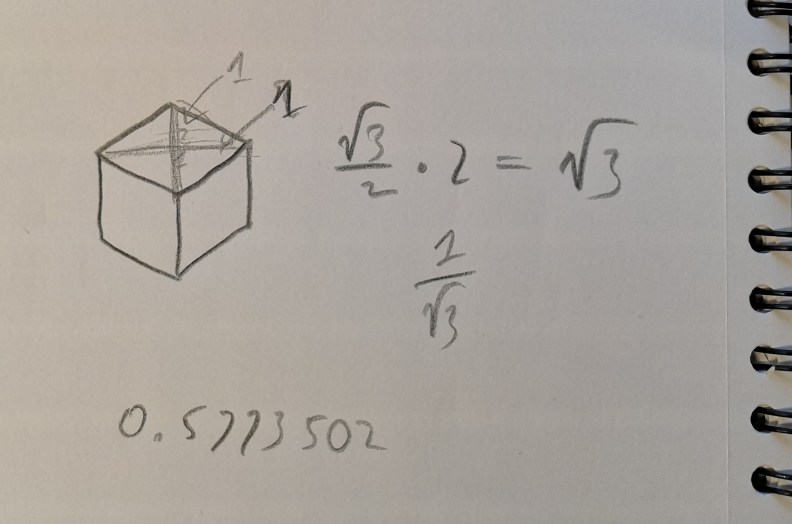 1
1
√3/2 · 2 = √3
1/√3
0.5773502